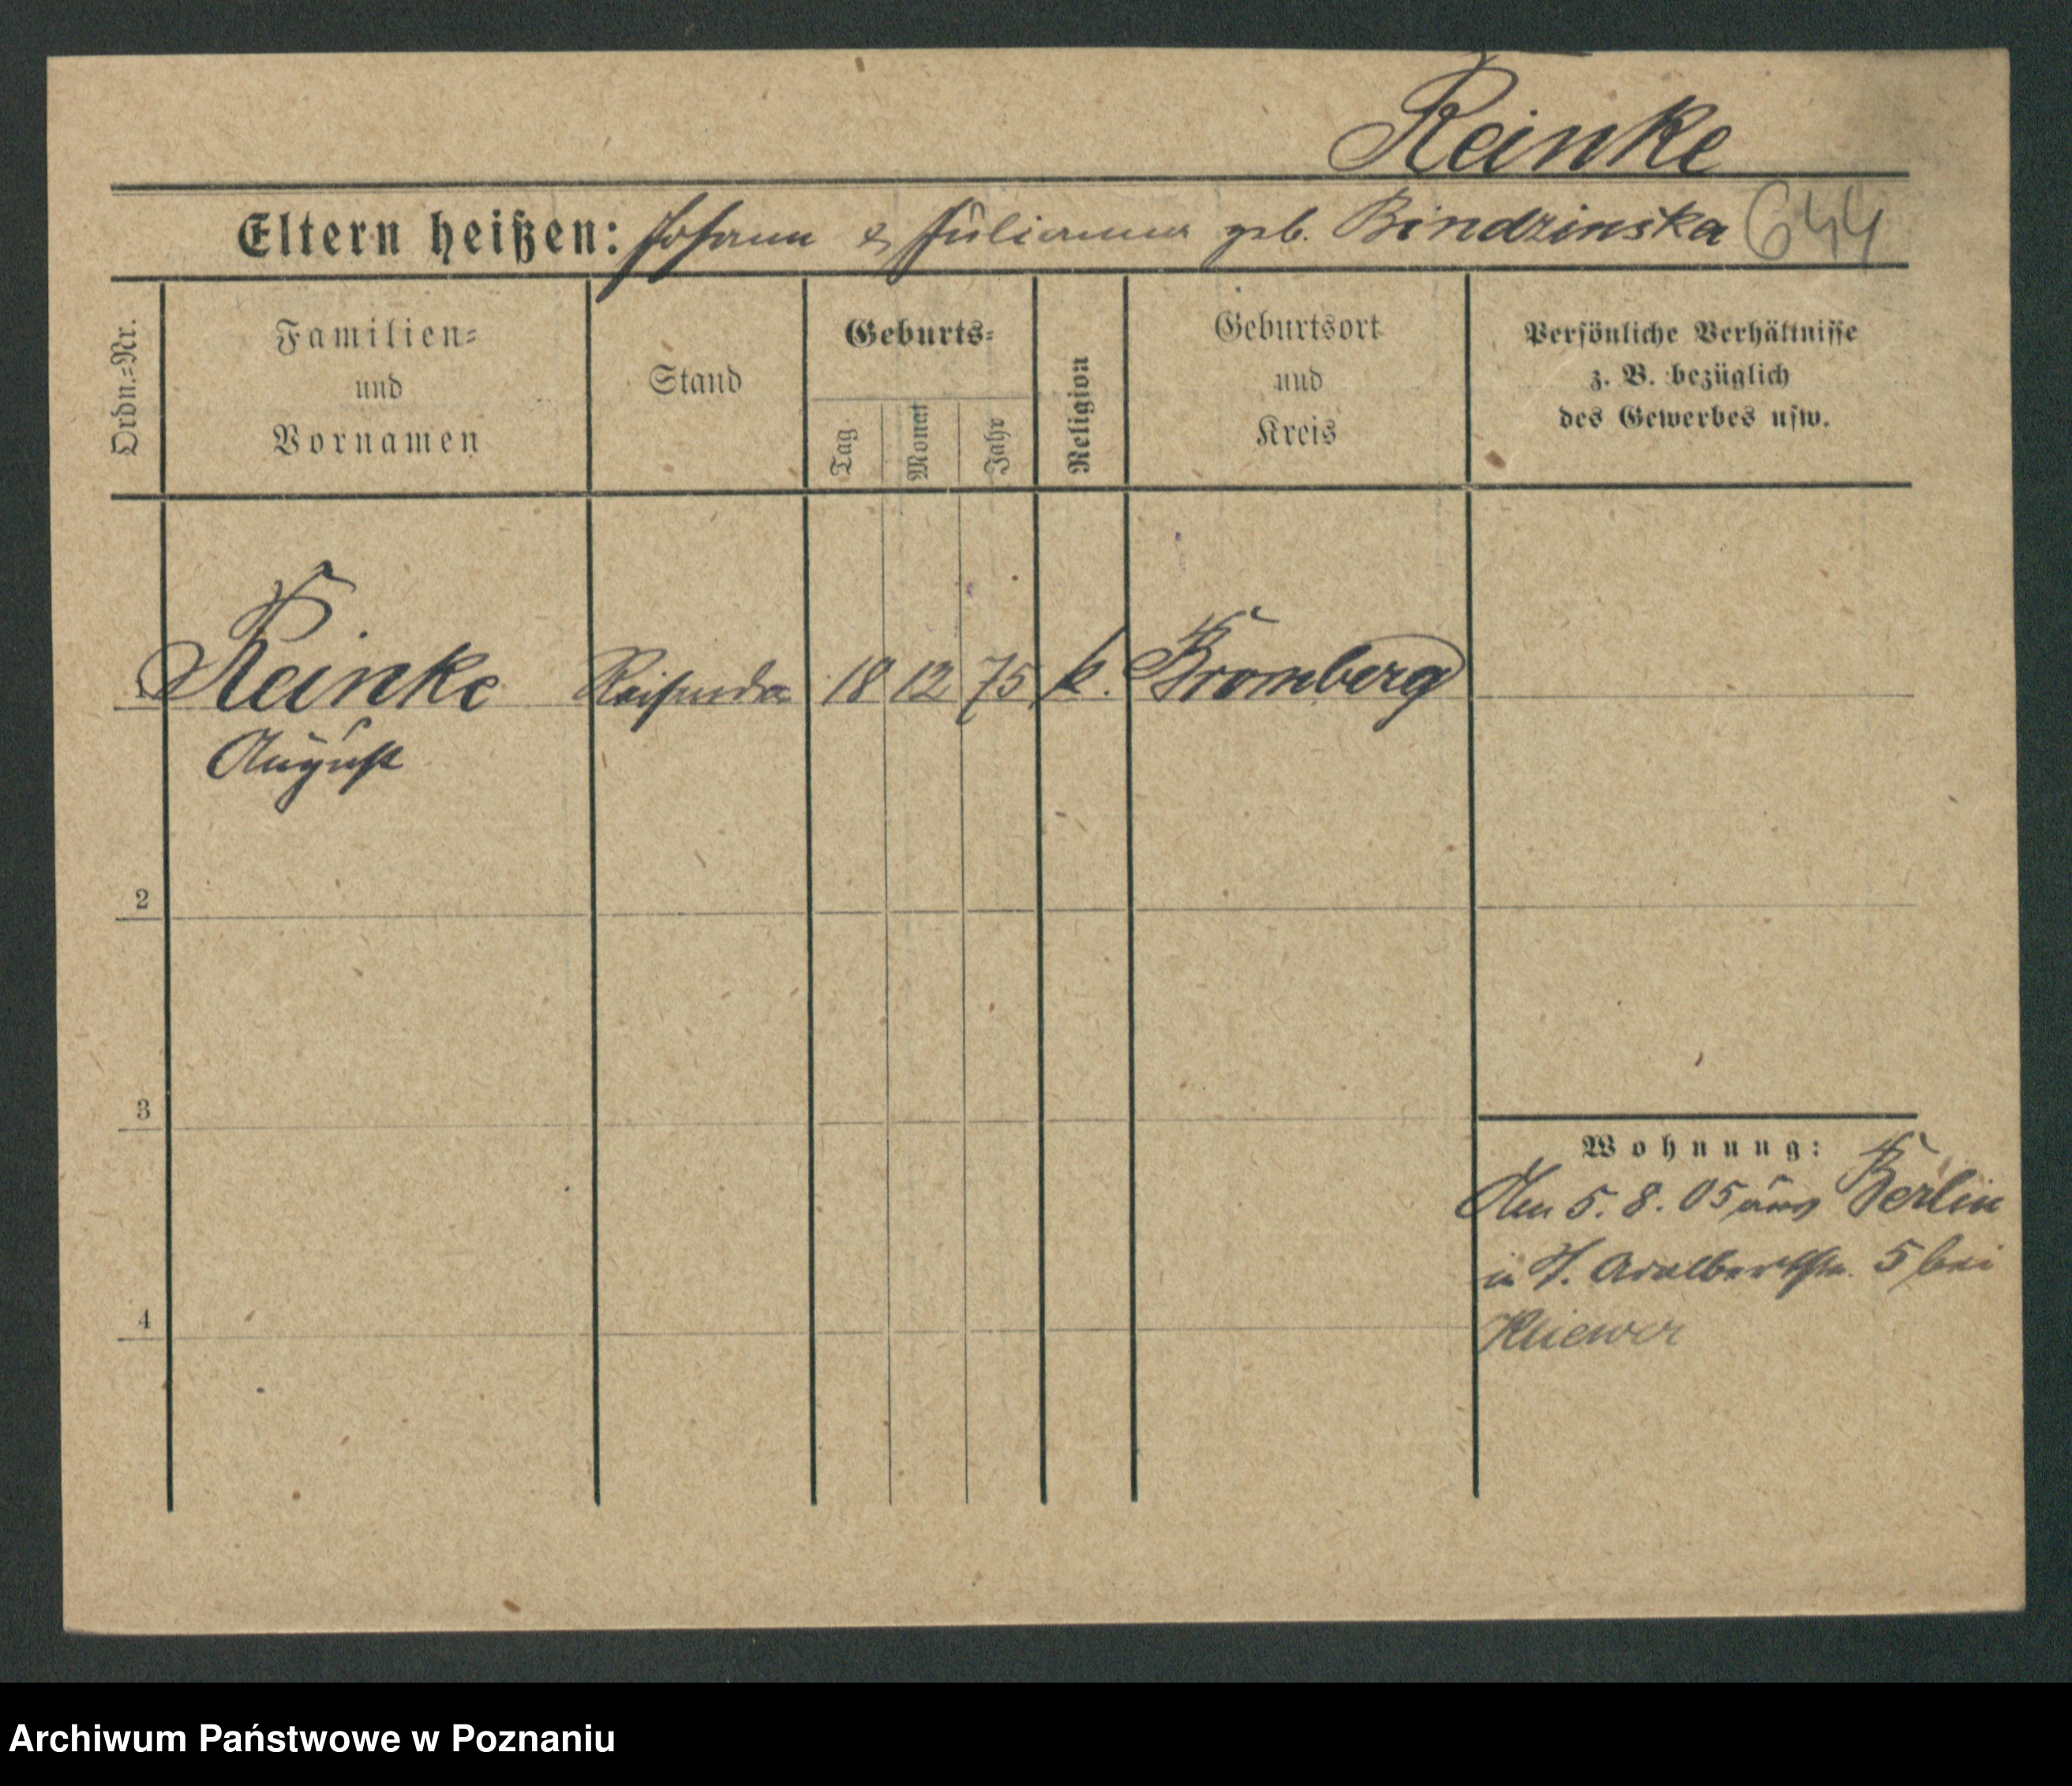 Reinke
Eltern heißen: Johann & Julianna geb. Bindzinska 644
Ordn.-Nr.
Familien-
und
Vornamen
Stand
Geburts-
Tag
Monat
Jahr
Religion
Geburtsort
und
Kreis
Persönliche Verhältnisse
z. B. bezüglich
des Gewerbes usw.
1 Reinke Reisender 18 12 75 k. Bromberg
August
2
3
4
Wohnung:
Am 5. 8. 05 aus Berlin
in P. Adalbertstr. 5 bei
Kliewer
Archiwum Państwowe w Poznaniu